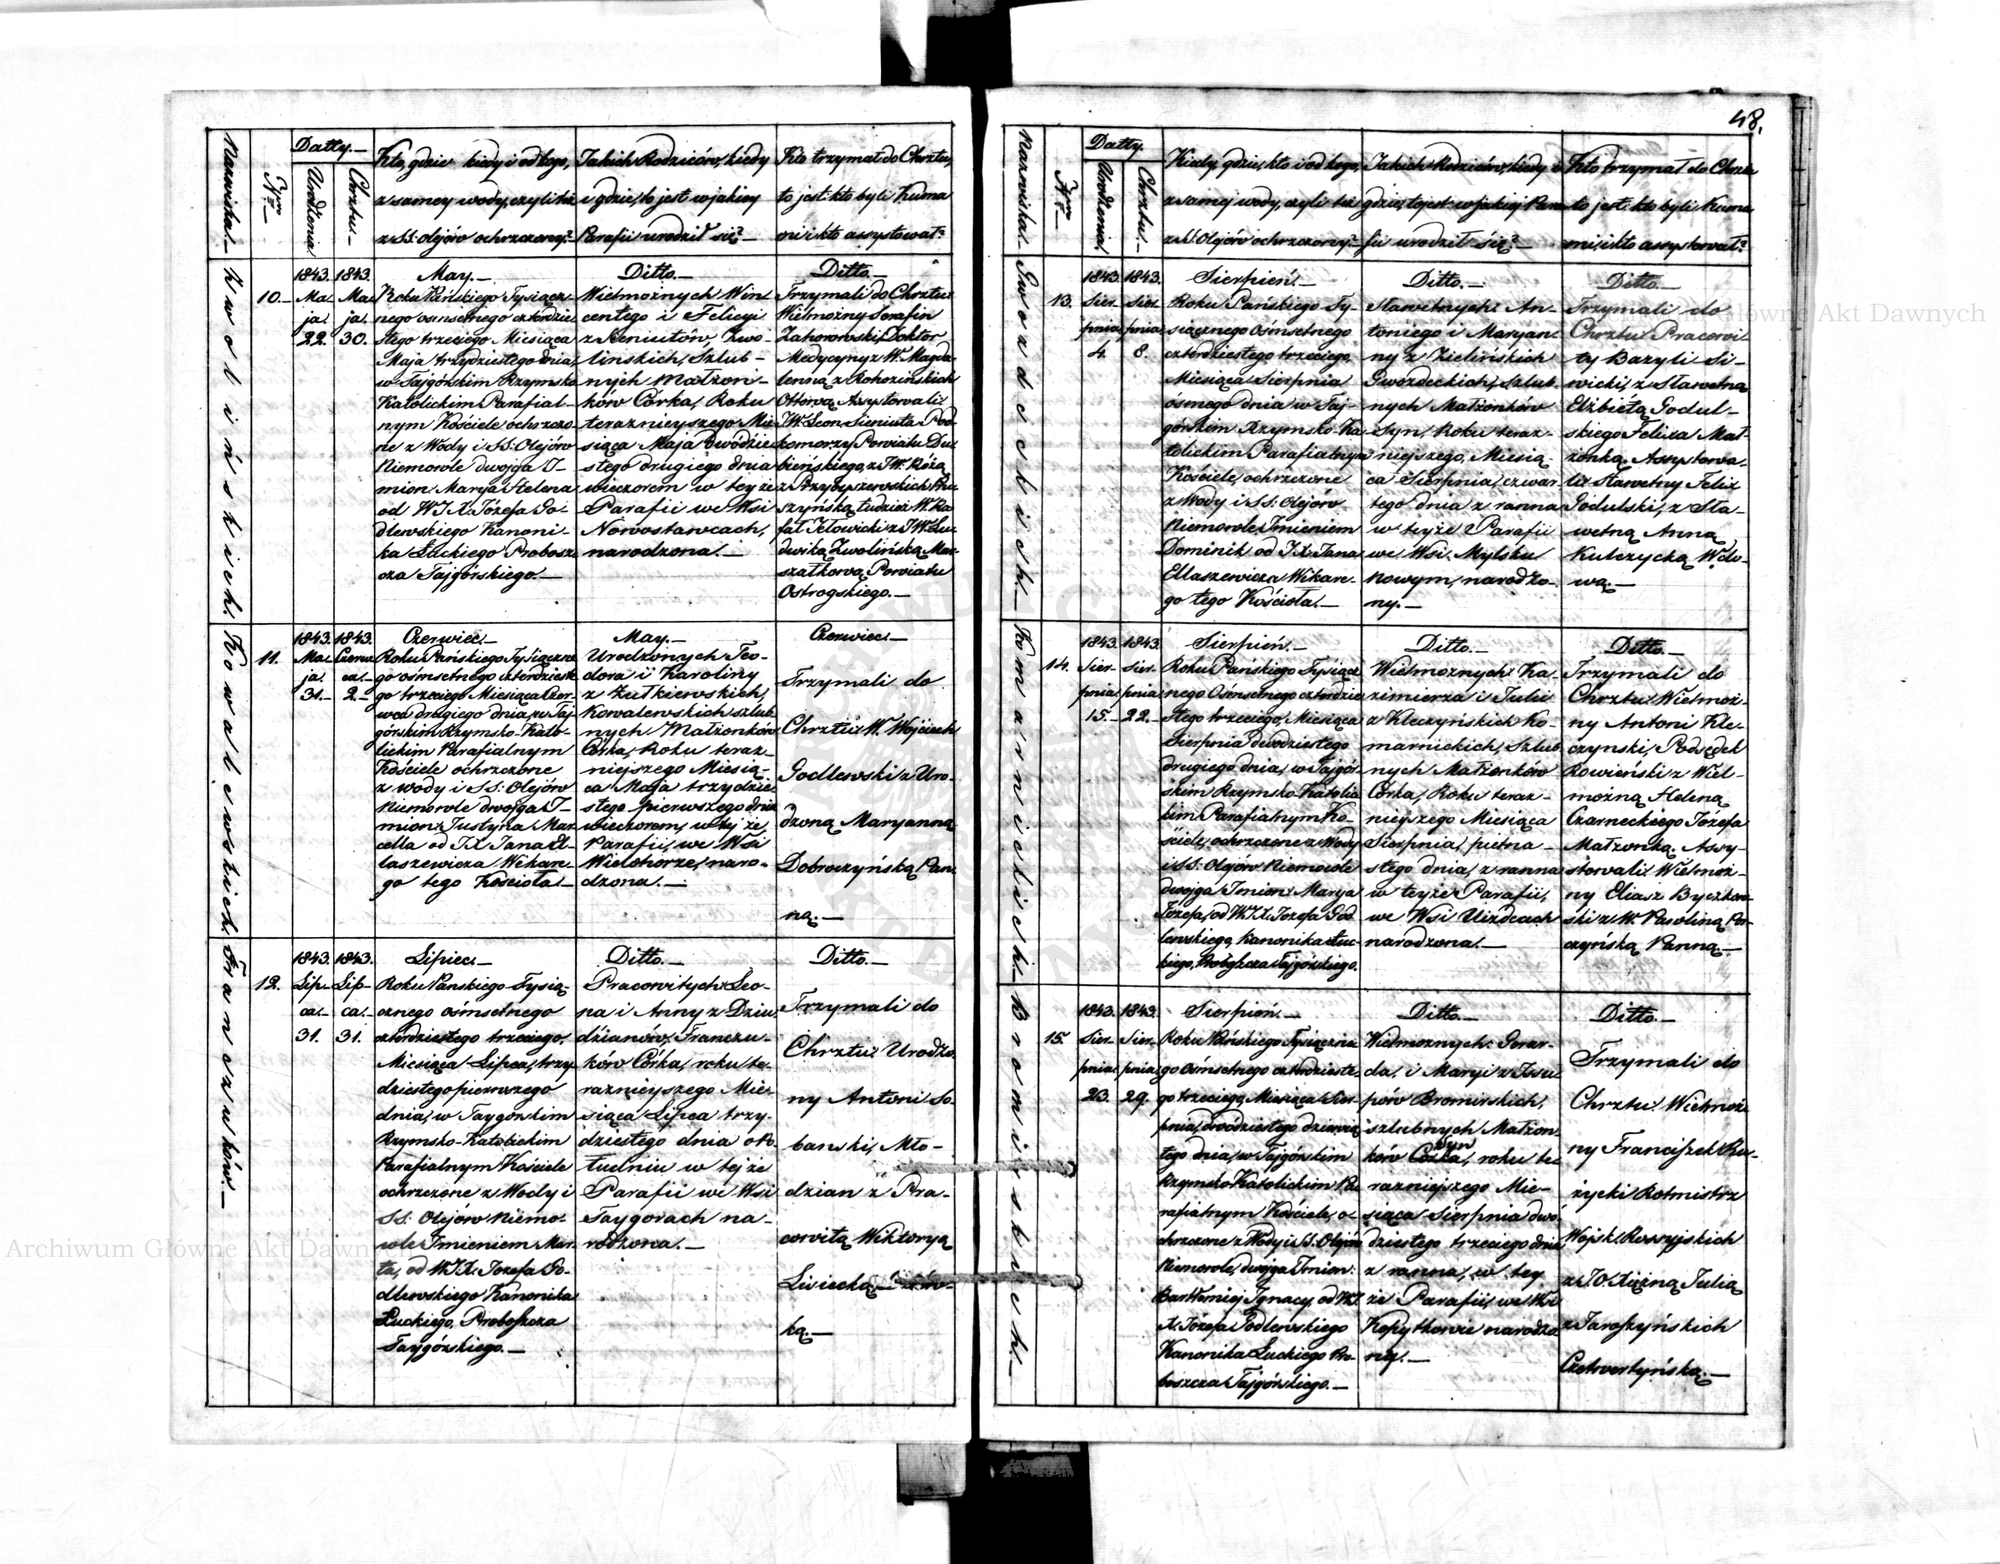 48.
Nazwiska.
Nro
Datty.
Urodzenia
Chrztu.
Kto, gdzie kiedy i od kogo,
z samey wody, czyli też
z SS: olejów ochrzczony?
Jakich Rodziców, kiedy
i gdzie, to jest w jakiey
Parafii urodził się?
Kto trzymał do Chrztu,
to jest: kto byli Kuma
mi i kto assystował?
Zwolińskich.
10.
1843.
Ma
ja.
22.
1843.
Ma
ja.
30.
May.
Roku Pańskiego Tysiącz
nego osmsetnego czterdzie
stego trzeciego Miesiąca
Maja trzydziestego dnia,
w Tajgórskim Rzymsko
Katolickim Parafial-
nym Kościele ochrzczo
ne z Wody i SS: Olejów
Niemowle dwojga I-
mion: Marya Helena
od W: J: X: Józefa Go-
dlewskiego Kanoni-
ka Łuckiego Probosz
cza Tajgórskiego.
Ditto.
Wielmożnych Win
centego i Felicyi
z Sieniutów, Zwo-
lińskich, Szlub-
nych Małżon-
ków Córka, Roku
teraznieyszego Mie
siąca Maja dwódzie
stego drugiego dnia
wieczorem w tey że
Parafii we Wsi
Nowostawcach,
narodzona.
Ditto.
Trzymali do Chrztu:
Wielmożny Serafin
Zahorowski, Doktor
Medycyny z W: Magda
lenną z Rohozińskich
Ottową, Assystowali:
JW: Leon Sieniuta Pod
komorzy Powiatu Du
bieńskiego, z JW: Różą
z Przybyszewskich Pru
szyńską tudzież W: Ra
fał Jełowicki z JW: Lu
dwiką Zwolińską Mar
szałkową Powiatu
Ostrogskiego.
Kowalewskich.
11.
1843.
Ma
ja
31.
1843.
Czerw
ca.
2.
Czerwiec.
Roku Pańskiego Tysiączne
go osmsetnego czterdzieste
go trzeciego Miesiąca Czer
wca drugiego dnia, w Taj
górskim Rzymsko-Kato-
lickim Parafialnym
Kościele ochrzczone
z wody i SS: Olejów
Niemowle dwojga I-
mion: Justyna Mar
cella od J: X: Jana El-
laszewicza Wikare-
go tego Kościoła.
May.
Urodzonych Teo-
dora i Karoliny
z Żutkiewskich
Kowalewskich szlub
nych Małżonków
Córka, Roku teraz-
niejszego Miesią-
ca Maja trzydzie
stego pierwszego dnia
wieczorem, w tey że
Parafii, we Wsi
Wielohorze, naro-
dzona.
Czerwiec.
Trzymali do
Chrztu: W: Wojciech
Godlewski z Uro-
dzoną Maryanną
Dobroczyńską Pan-
ną.
Franczuków.
12.
1843.
Lip-
ca.
31.
1843.
Lip-
ca.
31.
Lipiec.
Roku Pańskiego Tysią-
cznego ośmsetnego
czterdziestego trzeciego,
Miesiąca Lipca, trzy
dziestego pierwszego
dnia, w Taygórskim
Rzymsko-Katolickim
Parafialnym Kościele
ochrzczone z Wody i
SS: Olejów Niemo-
wle Imieniem Mar
ta, od W: J: X: Józefa Go-
dlewskiego Kanonika
Łuckiego, Proboszcza
Taygórskiego.
Ditto.
Pracowitych: Leo-
na i Anny z Dziu
dzianów, Franczu-
ków Córka, roku te-
raznieyszego Mie-
siąca Lipca trzy-
dziestego dnia o Po
łudniu w tej że
Parafii we Wsi
Taygorach na-
rodzona.
Ditto.
Trzymali do
Chrztu: Urodzo
ny Antoni So-
bański, Mło-
dzian z Pra-
cowitą Wiktoryą
ką.
Nazwiska.
Nro
Datty
Urodzenia
Chrztu.
Kiedy, gdzie, kto i od kogo,
z samej wody, czyli też
z SS: Olejów ochrzczony?
Jakich Rodziców, kiedy i
gdzie, to jest w jakiej Para
fii urodził się?
Kto trzymał do Chrztu
to jest: kto byli Kuma
mi i kto assystował?
Gwozdeckich.
13.
1843.
Sier-
pnia
4.
1843.
Sier
pnia
8.
Sierpień.
Roku Pańskiego Ty-
siącznego Osmsetnego
czterdziestego trzeciego,
Miesiąca Sierpnia
ósmego dnia w Taj-
górskim Rzymsko-Ka
tolickim Parafialnym
Kościele, ochrzczone
z Wody i SS: Olejów
Niemowle Imieniem
Dominik od J: X: Jana
Ellaszewicza Wikare-
go tego Kościoła.
Ditto.
Sławetnych: An-
toniego i Maryan
ny z Zielińskich
Gwozdeckich, Szlub
nych Małżonków
Syn, Roku teraz-
niejszego, Miesią
ca Sierpnia, czwar
tego dnia z ranna
w teyże Parafii
we Wsi Mylsku
nowym, narodzo-
ny.
Ditto.
Trzymali do
Chrztu Pracowi
ty Bazyli Si-
wicki, z Sławetną
Elżbietą Godul-
skiego Felixa Mał
żonką. Assystowa-
li: Sławetny Felix
Godulski, z Sła-
wetną Anną
Kulczycką Wdo-
wą.
Komarnickich.
14.
1843.
Sier-
pnia
15.
1843.
Sier-
pnia
22.
Sierpień.
Roku Pańskiego Tysiącz
nego Osmsetnego czterdzie
stego trzeciego, Miesiąca
Sierpnia dwudziestego
drugiego dnia, w Tajgór
skim Rzymsko-Katolic
kim Parafialnym Ko-
ściele, ochrzczone z Wody
i SS: Olejów Niemowle
dwojga Imion: Marya
Józefa, od W: J: X: Józefa God
lewskiego, Kanonika Łuc-
kiego, Proboszcza Tajgórskiego.
Ditto.
Wielmożnych: Ka
zimierza i Julii
z Kleczyńskich Ko-
marnickich, Szlub
nych Małżonków
Córka, Roku teraz-
niejszego Miesiąca
Sierpnia, piętna-
stego dnia, z ranna
w teyże Parafii,
we Wsi Uizdcach
narodzona.
Ditto.
Trzymali do
Chrztu: Wielmoż-
ny Antoni Kle-
czynski, Podsędek
Rowieński z Wiel-
możną Heleną
Czarneckiego Józefa
Małżonką. Assy-
stowali: Wielmoż-
ny Eliasz Byczkow
ski z W: Pawliną Por-
czyńską Panną.
Bromirskich.
15.
1843.
Sier-
pnia
23.
1843.
Sier-
pnia
29.
Sierpień.
Roku Pańskiego Tysiączne
go Osmsetnego czterdzieste
go trzeciego, Miesiąca Sier
pnia, dwódziestego dziewią
tego dnia, w Tajgórskim
Rzymsko-Katolickim Pa
rafialnym Kościele, o-
chrzczone z Wody i SS: Olejów
Niemowle, dwojga Imion:
Bartłomiej Ignacy, od W: J:
X: Józefa Godlewskiego
Kanonika Łuckiego Pro-
boszcza Tajgórskiego.
Ditto.
Wielmożnych: Gerar-
da, i Maryi z Jesu
pów Bromirskich,
szlubnych Małżon-
ków Córka, Syn roku te
razniejszego Mie-
siąca Sierpnia dwó
dziestego trzeciego dnia
z ranna, w tey
że Parafii, we Wsi
Kopytkowie narodzo
ny.
Ditto.
Trzymali do
Chrztu: Wielmoż
ny Franciszek Ru-
życki Rotmistrz
Wojsk Rossyjskich
z JO: Xiężną Julią
z Jaroszyńskich
Czetwertyńską.